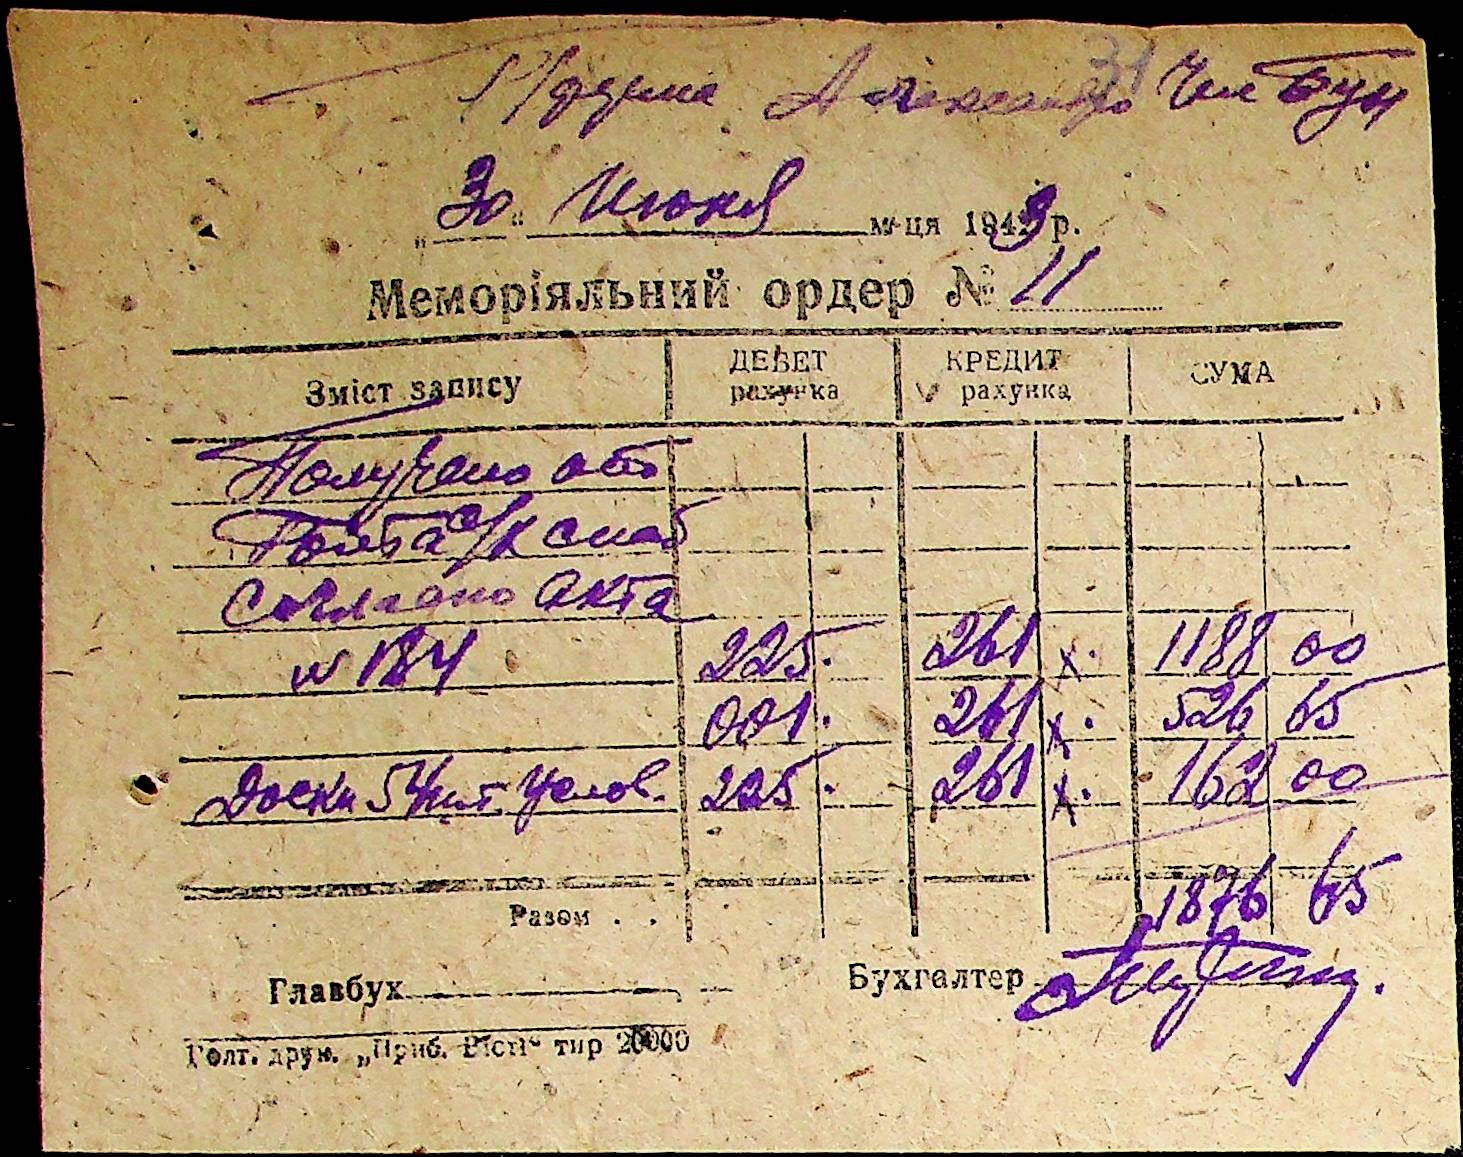 31
"30" Июня м-ця 1943 р.
Меморіяльний ордер № 11
Зміст запису ДЕБЕТ рахунка КРЕДИТ рахунка СУМА
Получено от
с/х снаб
Согласно акта
№ 184 225. 261 х. 1188 00
001. 261 х. 526 65
Доски 54 шт. услов. 225. 261 х. 162 00
Разом . . 1876 65
Главбух Бухгалтер
Голт. друк. „Приб. Вісті“ тир 20000